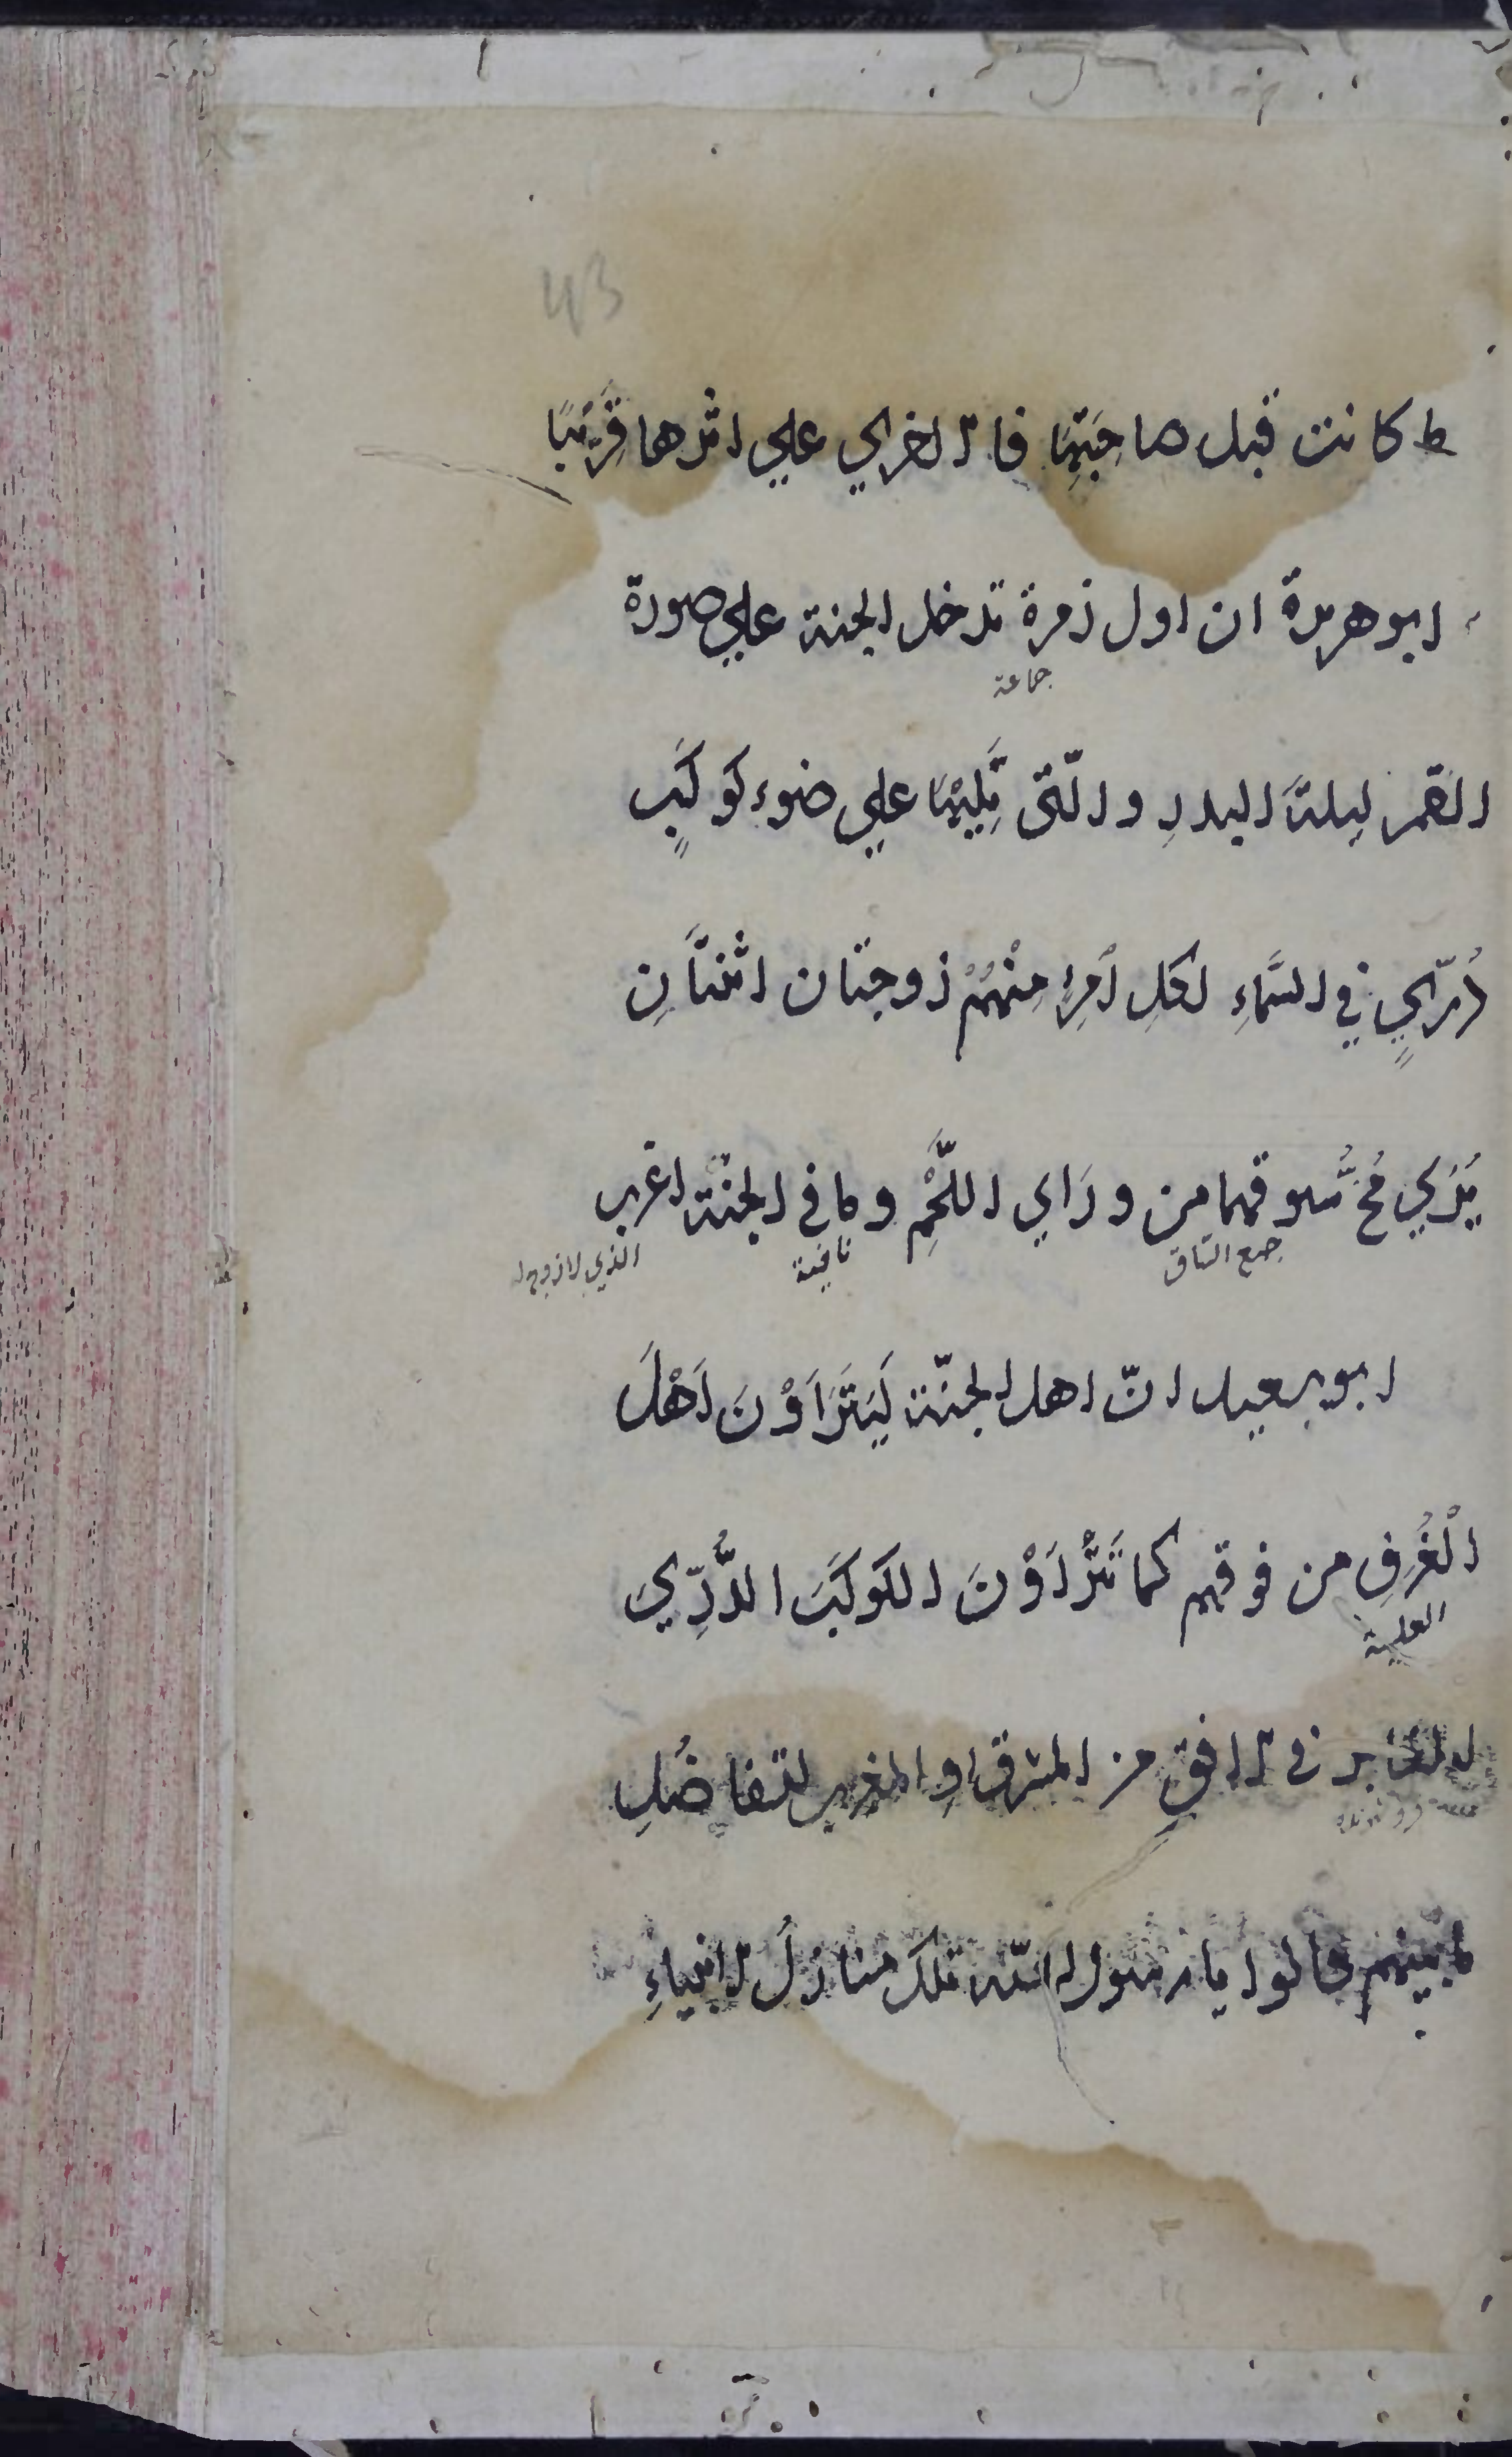 43
ط كانت قبل صاحِبَتِهَا فالاخري علي اثرها قَرِيْبًا
ابو هريرة ان اول زمرة تدخل الجنة علي صورة
جماعة
القمر ليلةَ البدرِ والّتى تَلِيْهَا علي ضوء كَوكَبٍ
دُرّيٍ في السَّمَاءِ لكلِ اْمرِءٍ مِنْهُمْ زوجتان اثنتَانِ
يُرَي مُخُّ سُوقهما من ورَاي اللَّحْمِ وما في الجنَّة اعزب
جمع السّاق
نافية
الذي لا زوج له
ابو سعيد انّ اهل الجنّة لَيَتَرَاَوْنَ اَهْلَ
الْغُرَفِ من فوقهم كما تَتَرَاَوْنَ الكَوكَبَ الدُّرِّيَ
العلية
الغابر في الافقِ من المشرق اوِ المغرب لتفاضُلِ
ما بينهم قالوا يا رسول الله تلكَ منازلُ الانبياءِ